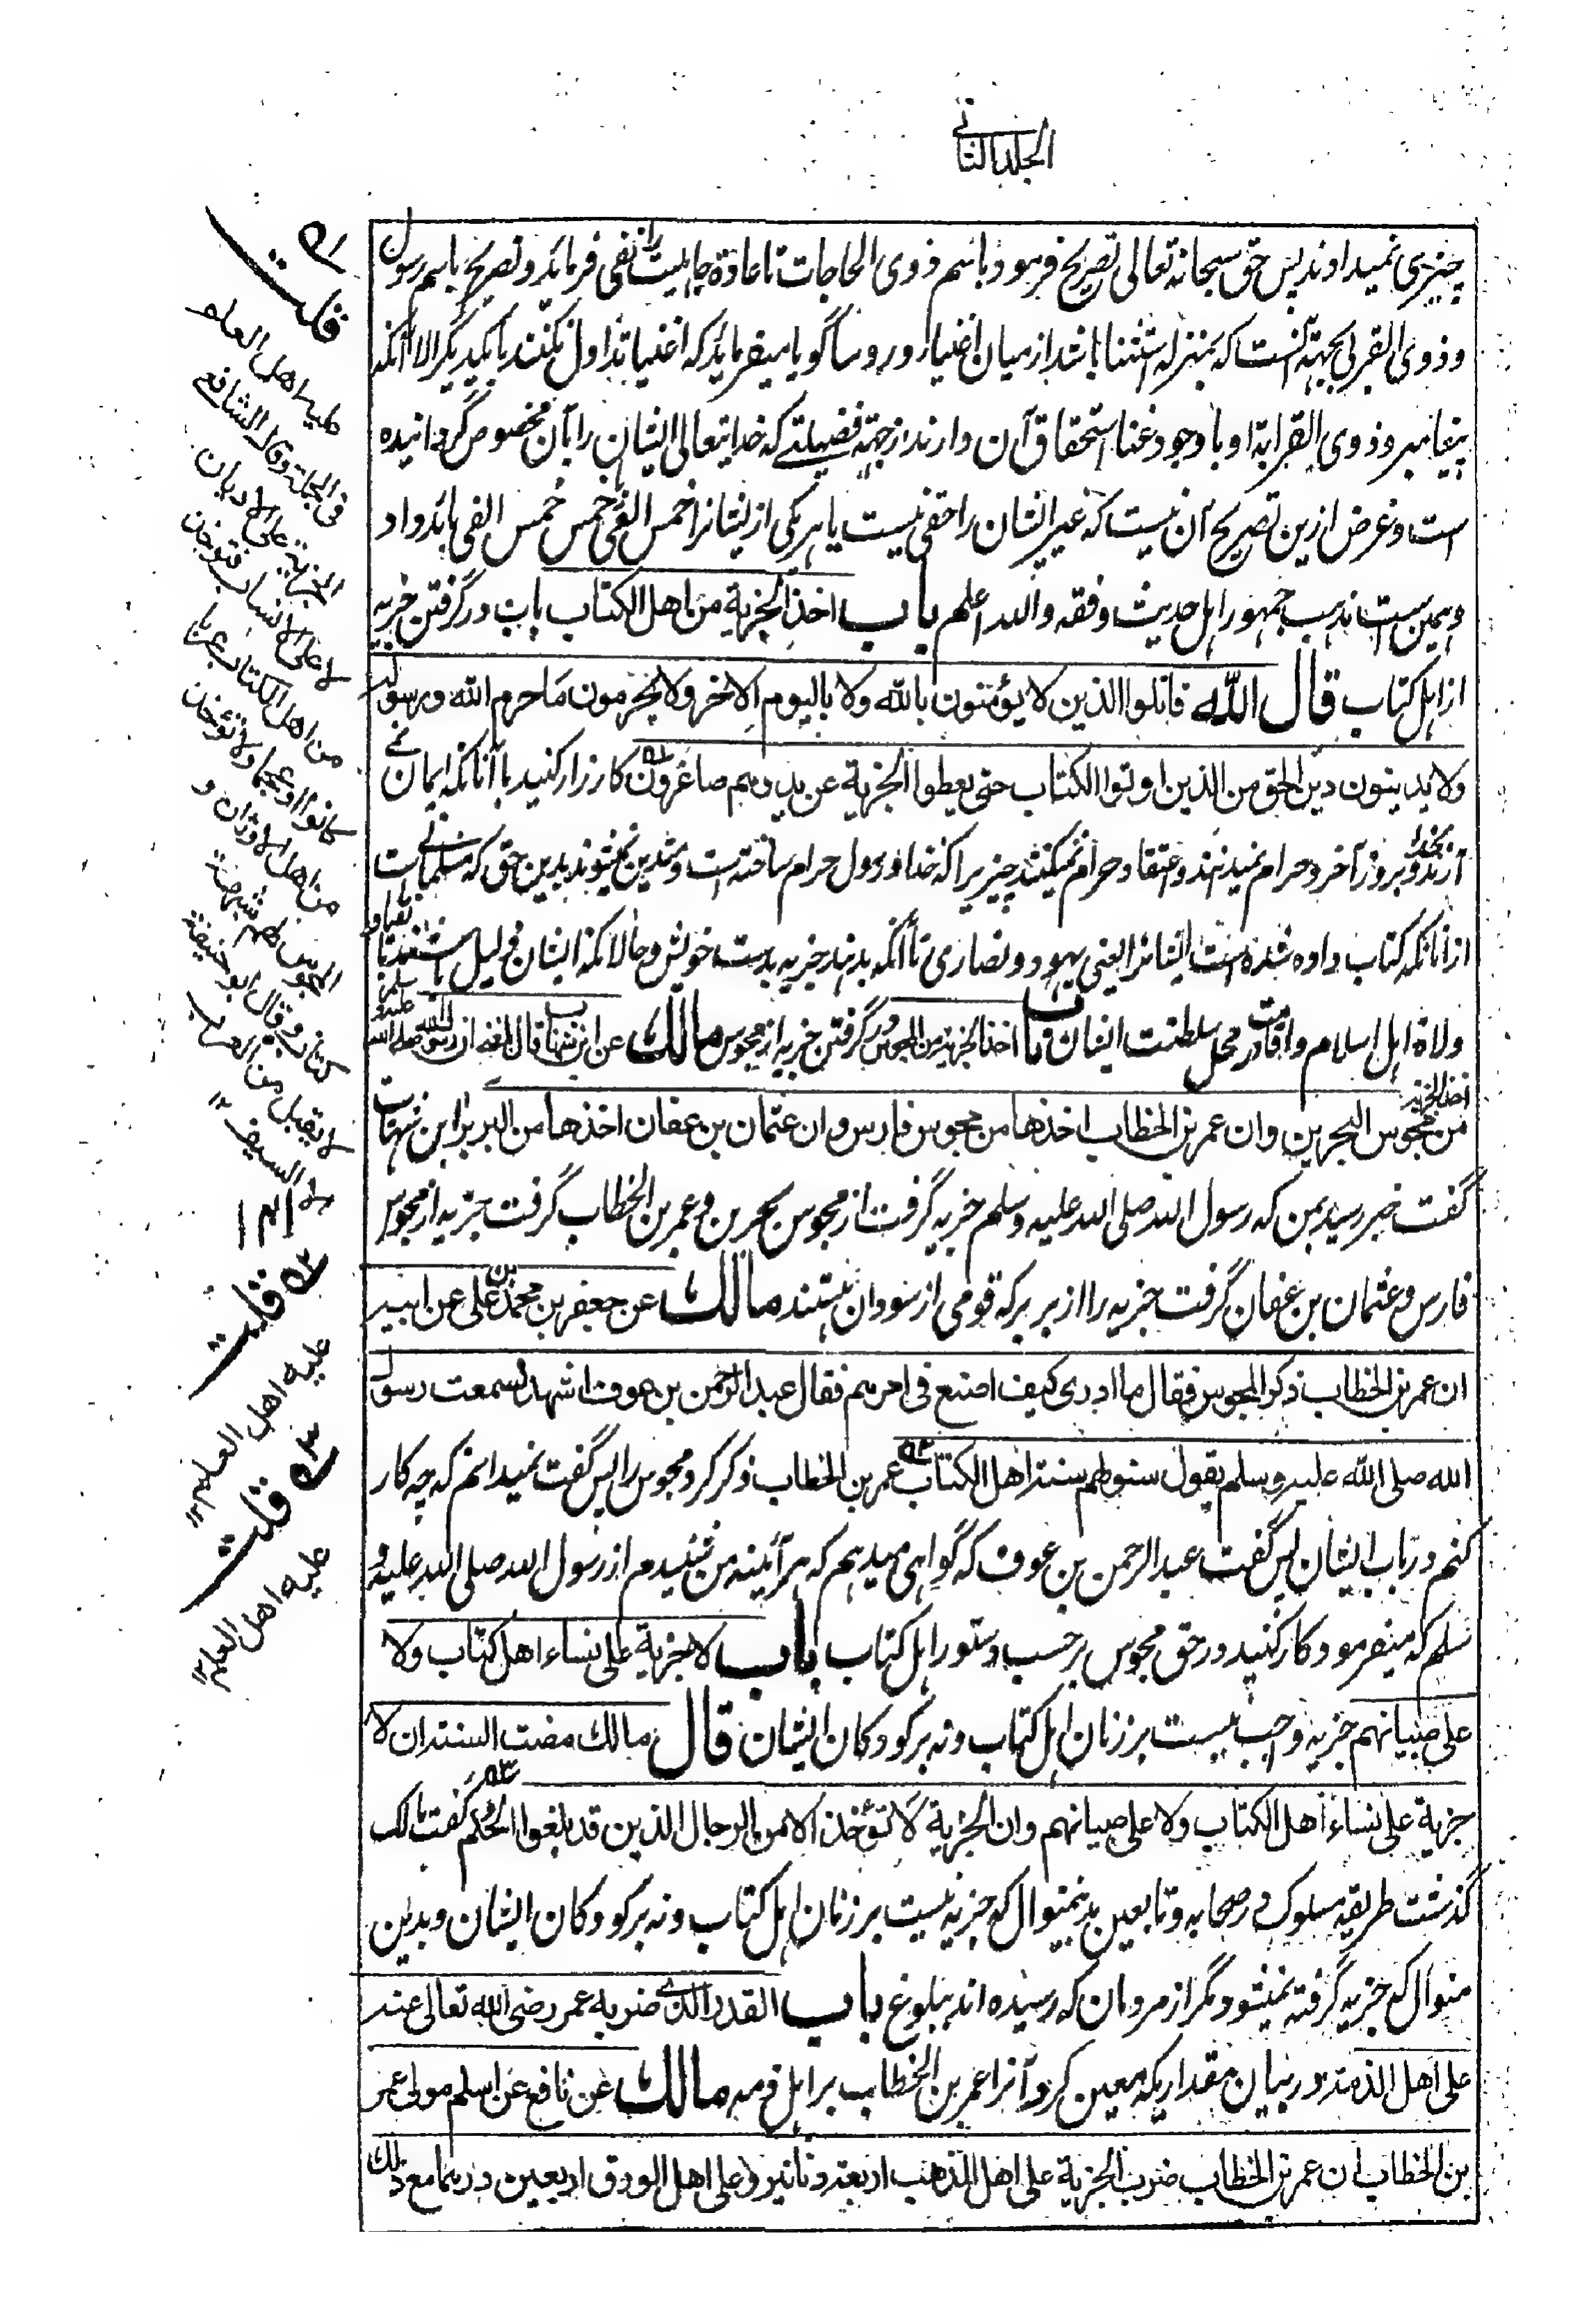 الجلد الثاني
چیزی نمیدادند پس حق سبحانه تعالی تصریح فرمود باسم ذوی الحاجات تا عادة جاهلیت را نفی فرماید و تصریح باسم رسول
و ذوی القربی بجهة آنست که بمنزله استثنا باشد از میان اغنیا و روسا گویا میفرماید که اغنیا تداول نکنند با یکدیگر الا آنکه
پیغامبر و ذوی القرابة او با وجود غنا استحقاق آن دارند از جهة فضیلتے که خدایتعالی ایشان را بآن مخصوص گردانیده
است و غرض ازین تصریح آن نیست که غیر ایشان را حقی نیست یا هر یکی از ایشانرا خمس الفئ خمس خمس الفی باید داد
و همین ست مذهب جمهور اهل حدیث و فقه والله اعلم باب اخذ الجزیة من اهل الکتاب باب در گرفتن جزیه
از اهل کتاب قال الله قاتلوا الذین لا یؤمنون بالله ولا بالیوم الاخر ولا یحرمون ما حرم الله ورسوله
ولا یدینون دین الحق من الذین اوتوا الکتاب حتی یعطوا الجزیة عن ید وهم صاغرون کارزار کنید با آنانکه ایمان نمے
آرند بخدا و بروز آخر و حرام نمیدانند و اعتقاد حرام نمیکنند چیزیرا که خدا و رسول حرام ساخته است و متدین نمیشوند بدین حق که مسلمانے ست
از انانکه کتاب داده شده است ایشانرا یعنی یهود و نصاری تا آنکه بدهند جزیه بدست خویش و حالانکه ایشان ذلیل باشند
ولاة اهل اسلام و اقامت در محل سلطنت ایشان باب اخذ الجزیة من المجوس در گرفتن جزیه از مجوس مالک عن ابن شهاب قال بلغنی ان رسول الله صلی الله علیه وسلم
اخذ الجزیة من مجوس البحرین وان عمر بن الخطاب اخذها من مجوس فارس وان عثمان بن عفان اخذها من البربر ابن شهاب
گفت خبر رسید بمن که رسول الله صلی الله علیه وسلم جزیه گرفت از مجوس بحرین و عمر بن الخطاب گرفت جزیه از مجوس
فارس و عثمان بن عفان گرفت جزیه را از بربر که قومی از سودان هستند مالک عن جعفر بن محمد بن علی عن ابیه
ان عمر بن الخطاب ذکر المجوس فقال ما ادری کیف اصنع فی امرهم فقال عبد الرحمن بن عوف اشهد لسمعت رسول
الله صلی الله علیه وسلم یقول سنوا بهم سنة اهل الکتاب عمر بن الخطاب ذکر کرد مجوس را پس گفت نمیدانم که چه کار
کنم در باب ایشان پس گفت عبد الرحمن بن عوف که گواهی میدهم که هر آئینه من شنیدم از رسول الله صلی الله علیه و
سلم که میفرمود کار کنید در حق مجوس بر حسب دستور اهل کتاب باب لا جزیة علی نساء اهل کتاب ولا
علی صبیانهم جزیه واجب نیست بر زنان اهل کتاب و نه بر کودکان ایشان قال مالک مضت السنة ان لا
جزیة علی نساء اهل الکتاب ولا علی صبیانهم وان الجزیة لا تؤخذ الا من الرجال الذین قد بلغوا الحلم گفت مالک
گذشت طریقه مسلوک در صحابه و تابعین بدینمنوال که جزیه نیست بر زنان اهل کتاب و نه بر کودکان ایشان و بدین
منوال که جزیه گرفته نمیشود مگر از مردمان که رسیده اند ببلوغ باب القدر الذی ضربه عمر رضی الله تعالی عنه
علی اهل الذمة در بیان مقداریکه معین کرد آنرا عمر بن الخطاب بر اهل ذمه مالک عن نافع عن اسلم مولی عمر
بن الخطاب ان عمر بن الخطاب ضرب الجزیة علی اهل الذهب اربعة دنانیر وعلی اهل الورق اربعین درهما مع ذلک
قلت
علیه اهل العلم
فی الجملة وقال الشافعے
الجزیة علی الادیان
لا علی الانساب فتؤخذ
من اهل الکتاب عربا
کانوا او عجما ولا تؤخذ
من اهل الاوثان و
المجوس لهم شبهة
کتاب وقال ابو حنیفة
لا یقبل من العرب
الا السیف ۱۲
قلت
علیه اهل العلم ۱۲
قلت
علیه اهل العلم ۱۲